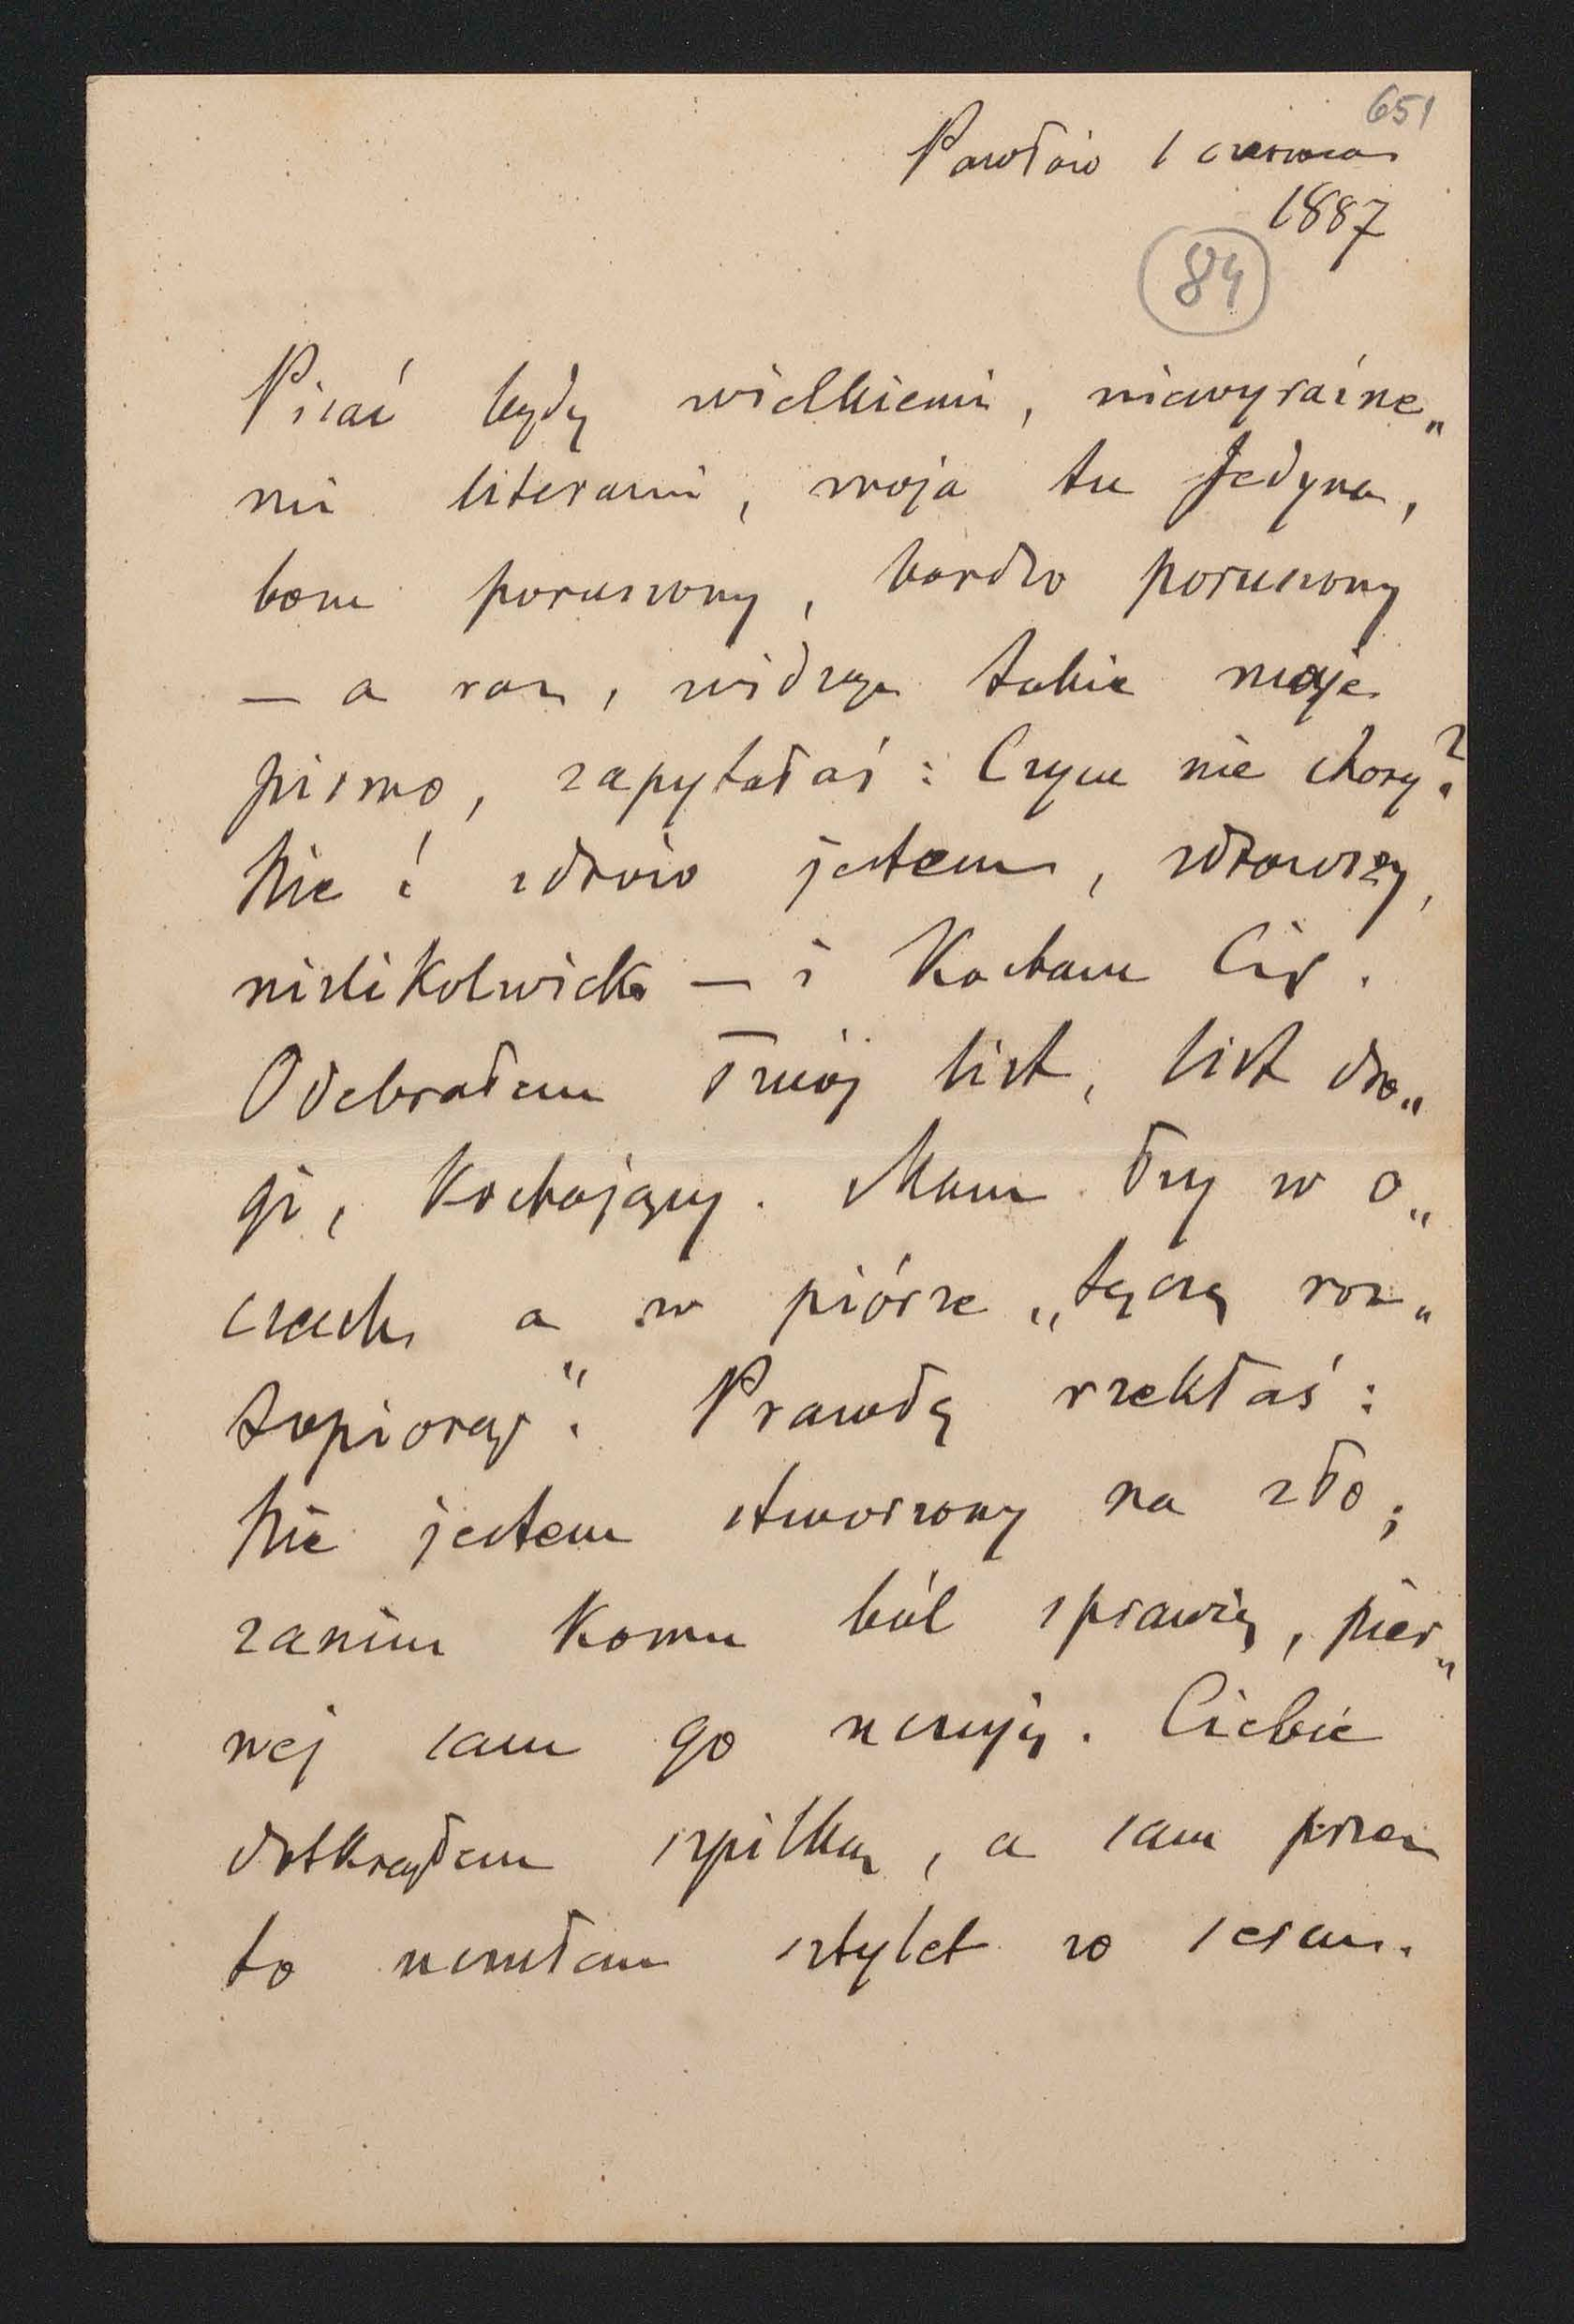 651
Pawłów 1 czerwca
1887
84
Pisać będę wielkiemi, niewyraźne„
mi literami, moja tu Jedyna,
bom poruszony, bardzo poruszony
— a raz, widząc takie moje
pismo, zapytałaś: Czym nie chory?
Nie! zdrów jestem, zdrowszy,
niźlikolwiek — i Kocham Cię.
Odebrałem Twój list, list dro„
gi, Kochający. Mam łzy w o„
czach a w piórze „tęczę roz„
topioną". Prawdę rzekłaś:
Nie jestem stworzony na zło;
zanim Komu ból sprawię, pier„
wej sam go uczuję. Ciebie
dotknąłem szpilką, a sam przez
to uczułem sztylet w sercu.